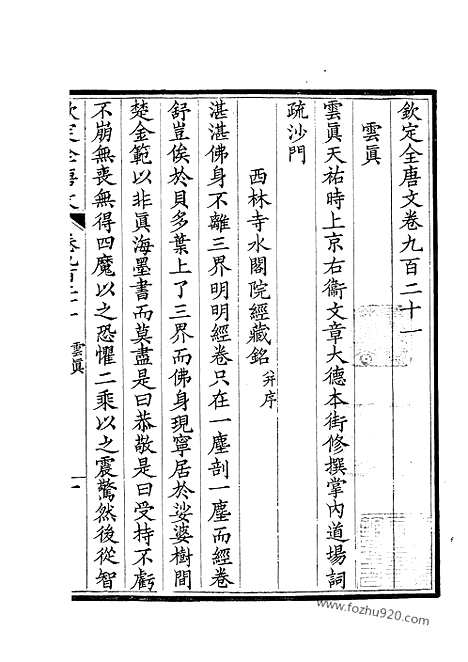 欽定全唐文卷九百二十一
雲眞
雲眞天祐時上京右衞文章大德本街修撰掌內道場詞
疏沙門
西林寺水閣院經藏銘并序
湛湛佛身不離三界明明經卷只在一塵剖一塵而經卷
舒豈俟於貝多葉上了三界而佛身現寧居於娑婆樹間
楚金範以非眞海墨書而莫盡是曰恭敬是曰受持不虧
不崩無喪無得四魔以之恐懼二乘以之震驚然後從智
欽定全唐文 卷九百二十一 雲眞 一
www.fozhu920.com